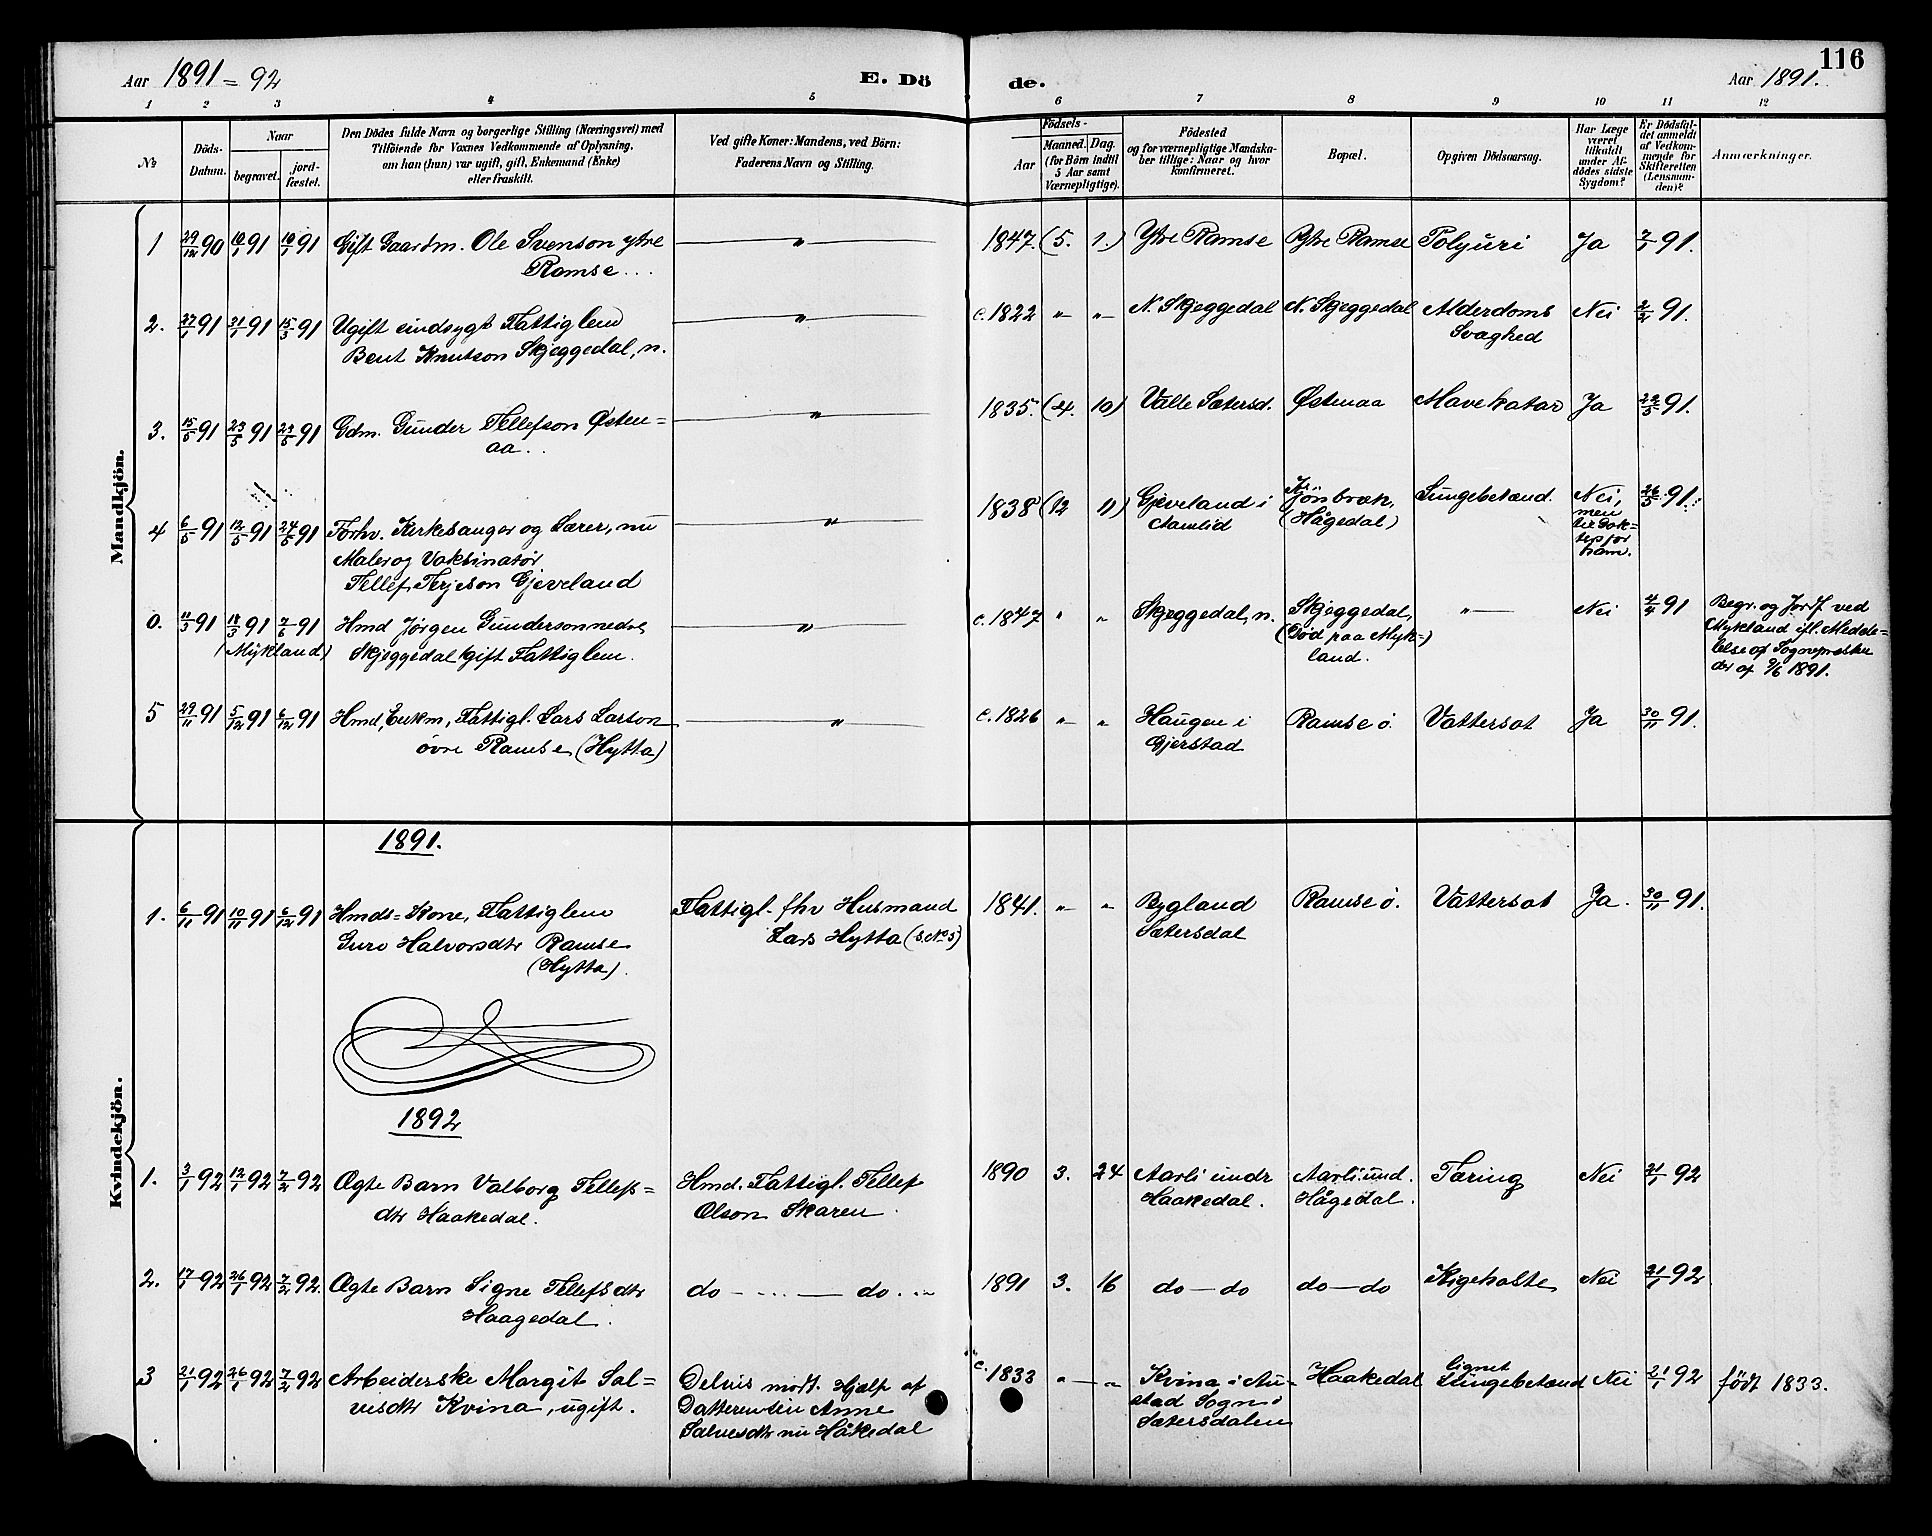 Aar 1891 = 92
E. Dö
de.
Aar 1891.
116
1 2 3 4 5 6 7 8 9 10 11 12
No
Döds-
Datum.
Naar
begravet.
jord-
fæstet.
Den Dödes fulde Navn og borgerlige Stilling (Næringsvei) med
Tilföiende for Voxnes Vedkommende af Oplysning,
om han (hun) var ugift, gift, Enkemand (Enke)
eller fraskilt.
Ved gifte Koner: Mandens, ved Börn:
Faderens Navn og Stilling.
Födsels-
Aar
Maaned. Dag.
(for Börn indtil
5 Aar samt
Værnepligtige).
Födested
og for værnepligtige Mandska-
ber tillige: Naar og hvor
konfirmeret.
Bopæl.
Opgiven Dödsaarsag.
Har Læge
været
tilkaldt
under Af-
dödes sidste
Sygdom?
Er Dödsfal-
det anmeldt
af Vedkom-
mende for
Skifteretten
(Lensman-
den)?
Anmærkninger.
Mandkjön.
1 29/12 90 10/1 91 10/1 91 Gift Gaardm. Ole Svenson ytre — " — 1847. (5. 1.) Ytre Ramse Ytre Ramse Polyuri Ja 7/1 91.
Ramse ...
2. 27/1 91 31/1 91 15/3 91 Ugift sindsygt Fattiglem — " — c. 1822 " " N. Skjeggedal N. Skjeggedal Alderdoms Nei 2/2 91.
Bent Knutson Skjeggedal, n.
Svaghed
3. 15/5 91 23/5 91 24/5 91 Gdm. Gunder Tellefson Østen= — " — 1835. (4. 10) Valle Sætersd. Østenaa Mavekatar Ja 22/5 91.
aa ..
4 6/5 91 12/5 91 24/5 91 Forhv. Kirkesanger og Lærer, nu — " — 1838 (12 11) Gjeveland i Jønsbræk, Lungebetænd. Nei, 26/5 91.
Maler og Vaksinatør
Tellef Terjeson Gjeveland
Aamlid
(Hågedal)
men
ham.
0. 11/3 91 18/3 91 7/6 91 Hmd Jørgen Gunderson nedre — " — c. 1847 " " Skjeggedal, n. Skjeggedal, " — Nei 4/4 91 Begr. og Jordf. ved
(Mykland) Skjeggedal gift Fattiglem. (Død paa Myk=)
land.
Mykland ifl. Medde=
lelse af Sognepræsten
der af 9/6 1891.
5 29/11 91 5/12 91 6/12 91 Hmd, Enkm, Fattigl. Lars Larson — " — c. 1826 " " Haugen i Ramse ø. Vattersot Ja 30/11 91.
øvre Ramse (Hytta)
Gjerstad
Kvindekjön.
1891.
1. 6/11 91 10/11 91 6/12 91 Hmds=Kone, Fattiglem Fattigl. fhv Husmand 1841. " " Bygland Ramse ø. Vattersot Ja. 30/11 91.
Guro Halvorsdtr Ramse Lars Hytta (s. No 5) Sætersdal
(Hytta).
1892
1. 3/1 92 12/1 92 7/2 92 Ægte Barn Valborg Tellefs= Hmd. Fattigl. Tellef 1890 3. 24 Aarli undr Aarli und. Tæring Nei 21/1 92
dtr Haakedal. Olson Skaren. Haakedal. Hågedal.
2. 17/1 92 26/1 92 7/2 92. Ægte Barn Signe Tellefsdtr do — ... — do ... 1891 3. 16 do — do do — do Kigehoste Nei 21/1 92
Haagedal.
3 21/1 92 26/1 92 7/2 92 Arbeiderske Margit Sal= Delvis modt. Hjælp af c. 1833 " — " Kvina i Au= Haakedal Lignet Lungebetænd Nei 21/1 92 født 1833.
vesdtr Kvina, ugift. Datteren sin Anne stad Sogn i
Salvesdtr nu Håkedal Sætersdalen